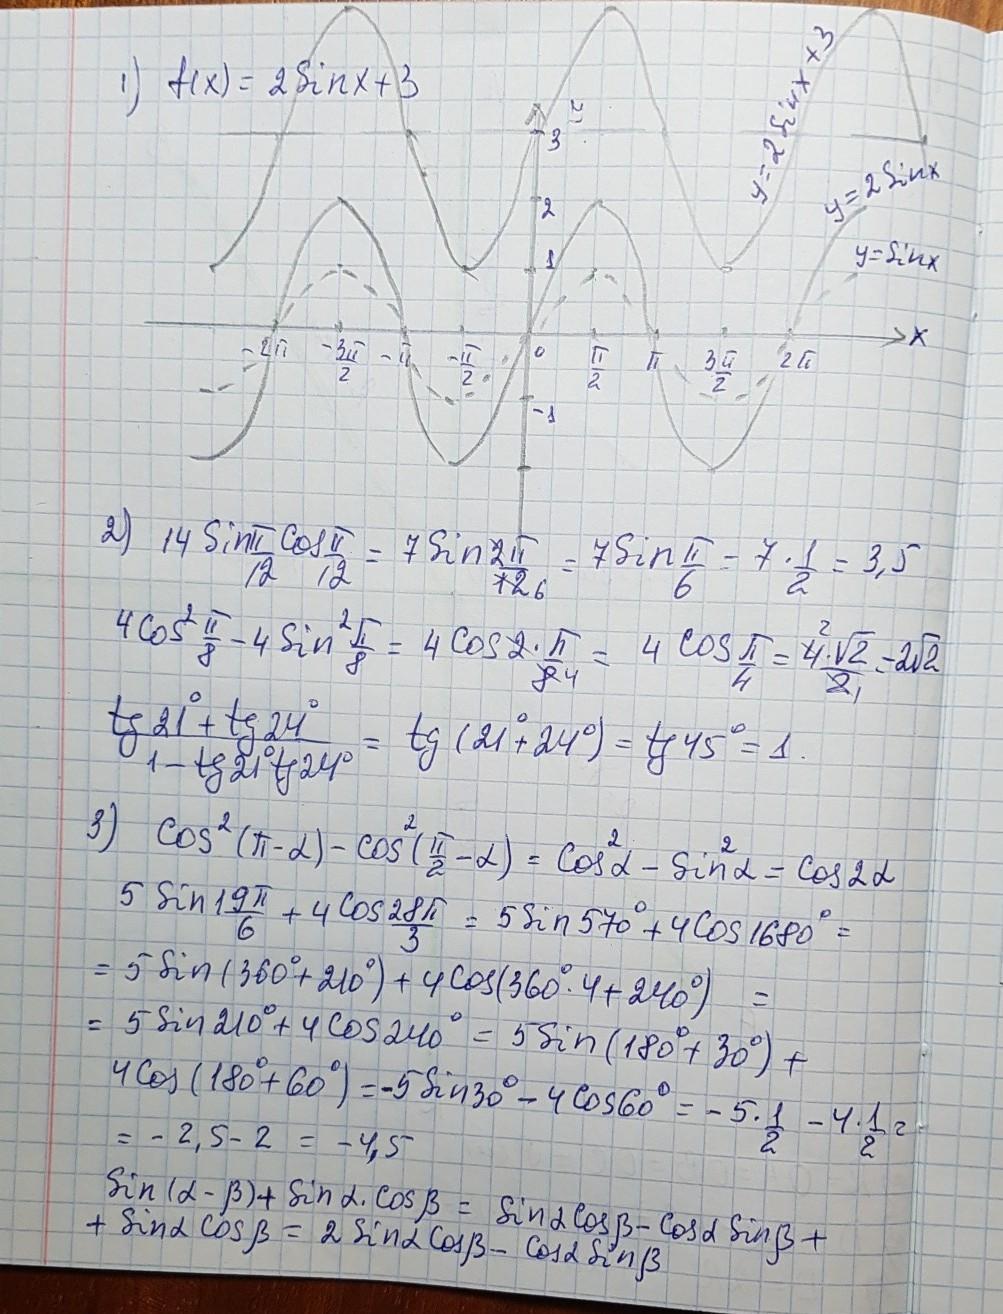 1) f(x) = 2Sinx+3
3
y=2Sinx+3
2
y=2Sinx
1
y=Sinx
-2π -3π/2 -π -π/2 0 π/2 π 3π/2 2π x
-1
2) 14 Sin π/12 Cos π/12 = 7Sin 2π/12 6 = 7Sin π/6 = 7·1/2 = 3,5
4Cos² π/8 - 4Sin² π/8 = 4Cos2·π/8 4 = 4Cos π/4 = 4·√2/2 2 1 = 2√2
tg21°+tg24°/1-tg21°tg24° = tg(21°+24°) = tg45° = 1.
3) Cos²(π-α) - cos²(π/2-α) = Cos²α - Sin²α = Cos2α
5Sin 19π/6 + 4Cos 28π/3 = 5Sin570° + 4Cos1680° =
= 5Sin(360°+210°) + 4Cos(360°·4+240°) =
= 5Sin210° + 4Cos240° = 5Sin(180°+30°) +
4Cos(180°+60°) = -5Sin30° - 4Cos60° = -5·1/2 - 4·1/2 =
= -2,5-2 = -4,5
Sin(α-β) + Sinα·Cosβ = SinαCosβ - CosαSinβ +
+ SinαCosβ = 2SinαCosβ - CosαSinβ